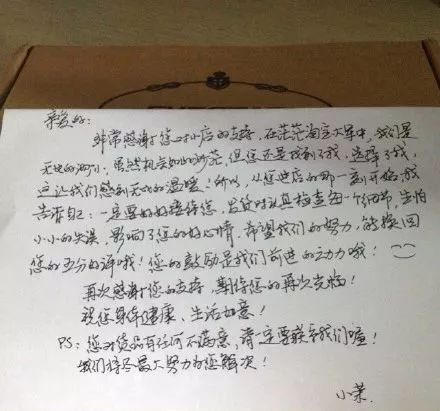 亲爱的:
非常感谢您对小店的支持,在茫茫淘宝大军中,我们是
无比的渺小,虽然机会如此渺茫,但您还是找到了我,选择了我,
这让我们感到无比的温暖!所以,从您进店的那一刻开始,我
告诉自己:一定要好好接待您,发货时认真检查每一个细节,生怕
小小的失误,影响了您的好心情,希望我们的努力,能换回
您的五分好评哦!您的鼓励是我们前进的动力哦!
再次感谢您的支持,期待您的再次光临!
祝您身体健康、生活如意!
PS:您对货品有任何不满意,请一定要联系我们喔!
我们将尽最大努力为您解决!
小茉